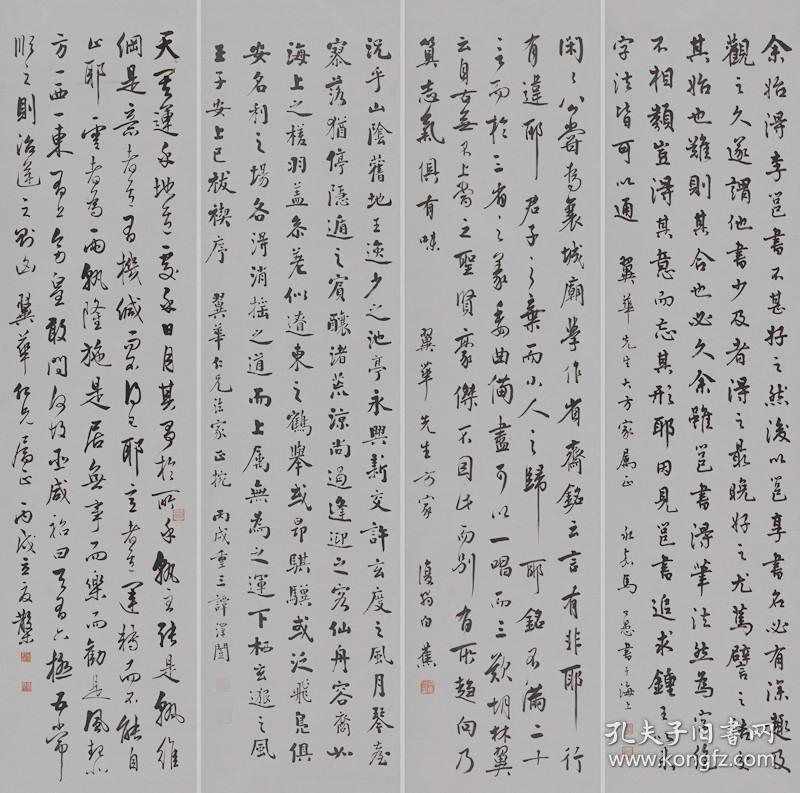 余始得李邕書不甚好之然後以邕享書名必有深趣及
觀之久遂謂他書少及者得之最晚好之尤篤譬之結交
其始也難則其合也必久余雖因邕書得筆法然為字絕
不相類豈得其意而忘其形耶因見邕書追求鍾王以來
字法皆可以通 翼華先生大方家屬正 永嘉馬公愚書于海上
閑之公嘗為襄城廟學作省齋銘云言有非耶行
有違耶君子之棄而小人之歸耶銘不滿二十
言而於三省之義委曲備盡可以一唱而三歎胡林翼
云自古無不上當之聖賢豪傑不因此而別有所趨向乃
算志氣俱有味 翼華先生方家 復翁白蕉
況乎山陰舊地王逸少之池亭永興新交許玄度之風月琴臺
寥落猶停隱遁之賓釀渚荒涼尚遏逢迎之客仙舟容裔如
海上之槎羽蓋參差似遼東之鶴舉或昂騏驥或泛飛鳧俱
安名利之場各得消搖之道而上属無為之運下栖玄邈之風
王子安上巳祓禊序 翼華仁兄法家正捥 丙戌重三譚澤闓
天其運乎地其處乎日月其爭於所乎孰主張是孰維
綱是意者其有機緘而不得已耶意者其運轉而不能自
止耶雲者為雨孰隆施是居無事而樂而勸是風起北
方一西一東有上彷皇敢問何故巫咸祒曰天有六極五常
順之則治逆之則凶 翼華仁兄屬正 丙戌立夏
孔夫子旧书网